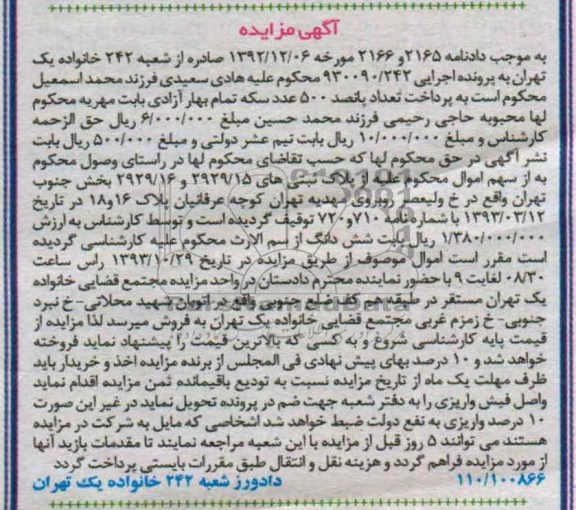 آگهی مزایده
به موجب دادنامه ۲۱۶۵ و ۲۱۶۶ مورخه ۱۳۹۲/۱۲/۰۶ صادره از شعبه ۲۴۲ خانواده یک
تهران به پرونده اجرایی ۹۳۰۰۹۰/۲۴۲ محکوم علیه هادی سعیدی فرزند محمد اسمعیل
محکوم است به پرداخت تعداد پانصد ۵۰۰ عدد سکه تمام بهار آزادی بابت مهریه محکوم
لها محبوبه حاجی رحیمی فرزند محمد حسین مبلغ ۶/۰۰۰/۰۰۰ ریال حق الزحمه
کارشناس و مبلغ ۱۰/۰۰۰/۰۰۰ ریال بابت نیم عشر دولتی و مبلغ ۵۰۰/۰۰۰ ریال بابت
نشر آگهی در حق محکوم لها که حسب تقاضای محکوم لها در راستای وصول محکوم
به از سهم اموال محکوم علیه از پلاک ثبتی های ۲۹۲۹/۱۵ و ۲۹۲۹/۱۶ بخش جنوب
تهران واقع در خ ولیعصر روبروی مهدیه تهران کوچه عرفانیان پلاک ۱۶و۱۸ در تاریخ
۱۳۹۳/۰۳/۱۲ با شماره نامه ۷۱۰و۷۲۰ توقیف گردیده است و توسط کارشناس به ارزش
۱/۳۸۰/۰۰۰/۰۰۰ ریال بابت شش دانگ از سم الارث محکوم علیه کارشناسی گردیده
است مقرر است اموال موصوف از طریق مزایده در تاریخ ۱۳۹۳/۱۰/۲۹ راس ساعت
۰۸/۳۰ لغایت ۹ با حضور نماینده محترم دادستان در واحد مزایده مجتمع قضایی خانواده
یک تهران مستقر در طبقه هم کف ضلع جنوبی واقع در اتوبان شهید محلاتی- خ نبرد
جنوبی- خ زمزم غربی مجتمع قضایی خانواده یک تهران به فروش میرسد لذا مزایده از
قیمت پایه کارشناسی شروع و به کسی که بالاترین قیمت را پیشنهاد نماید فروخته
خواهد شد و ۱۰ درصد بهای پیش نهادی فی المجلس از برنده مزایده اخذ و خریدار باید
ظرف مهلت یک ماه از تاریخ مزایده نسبت به تودیع باقیمانده ثمن مزایده اقدام نماید
واصل فیش واریزی را به دفتر شعبه جهت ضم در پرونده تحویل نماید در غیر این صورت
۱۰ درصد واریزی به نفع دولت ضبط خواهد شد اشخاصی که مایل به شرکت در مزایده
هستند می توانند ۵ روز قبل از مزایده با این شعبه مراجعه نمایند تا مقدمات بازید آنها
از مورد مزایده فراهم گردد و هزینه نقل و انتقال طبق مقررات بایستی پرداخت گردد
۱۱۰/۱۰۰۸۶۶ دادورز شعبه ۲۴۲ خانواده یک تهران